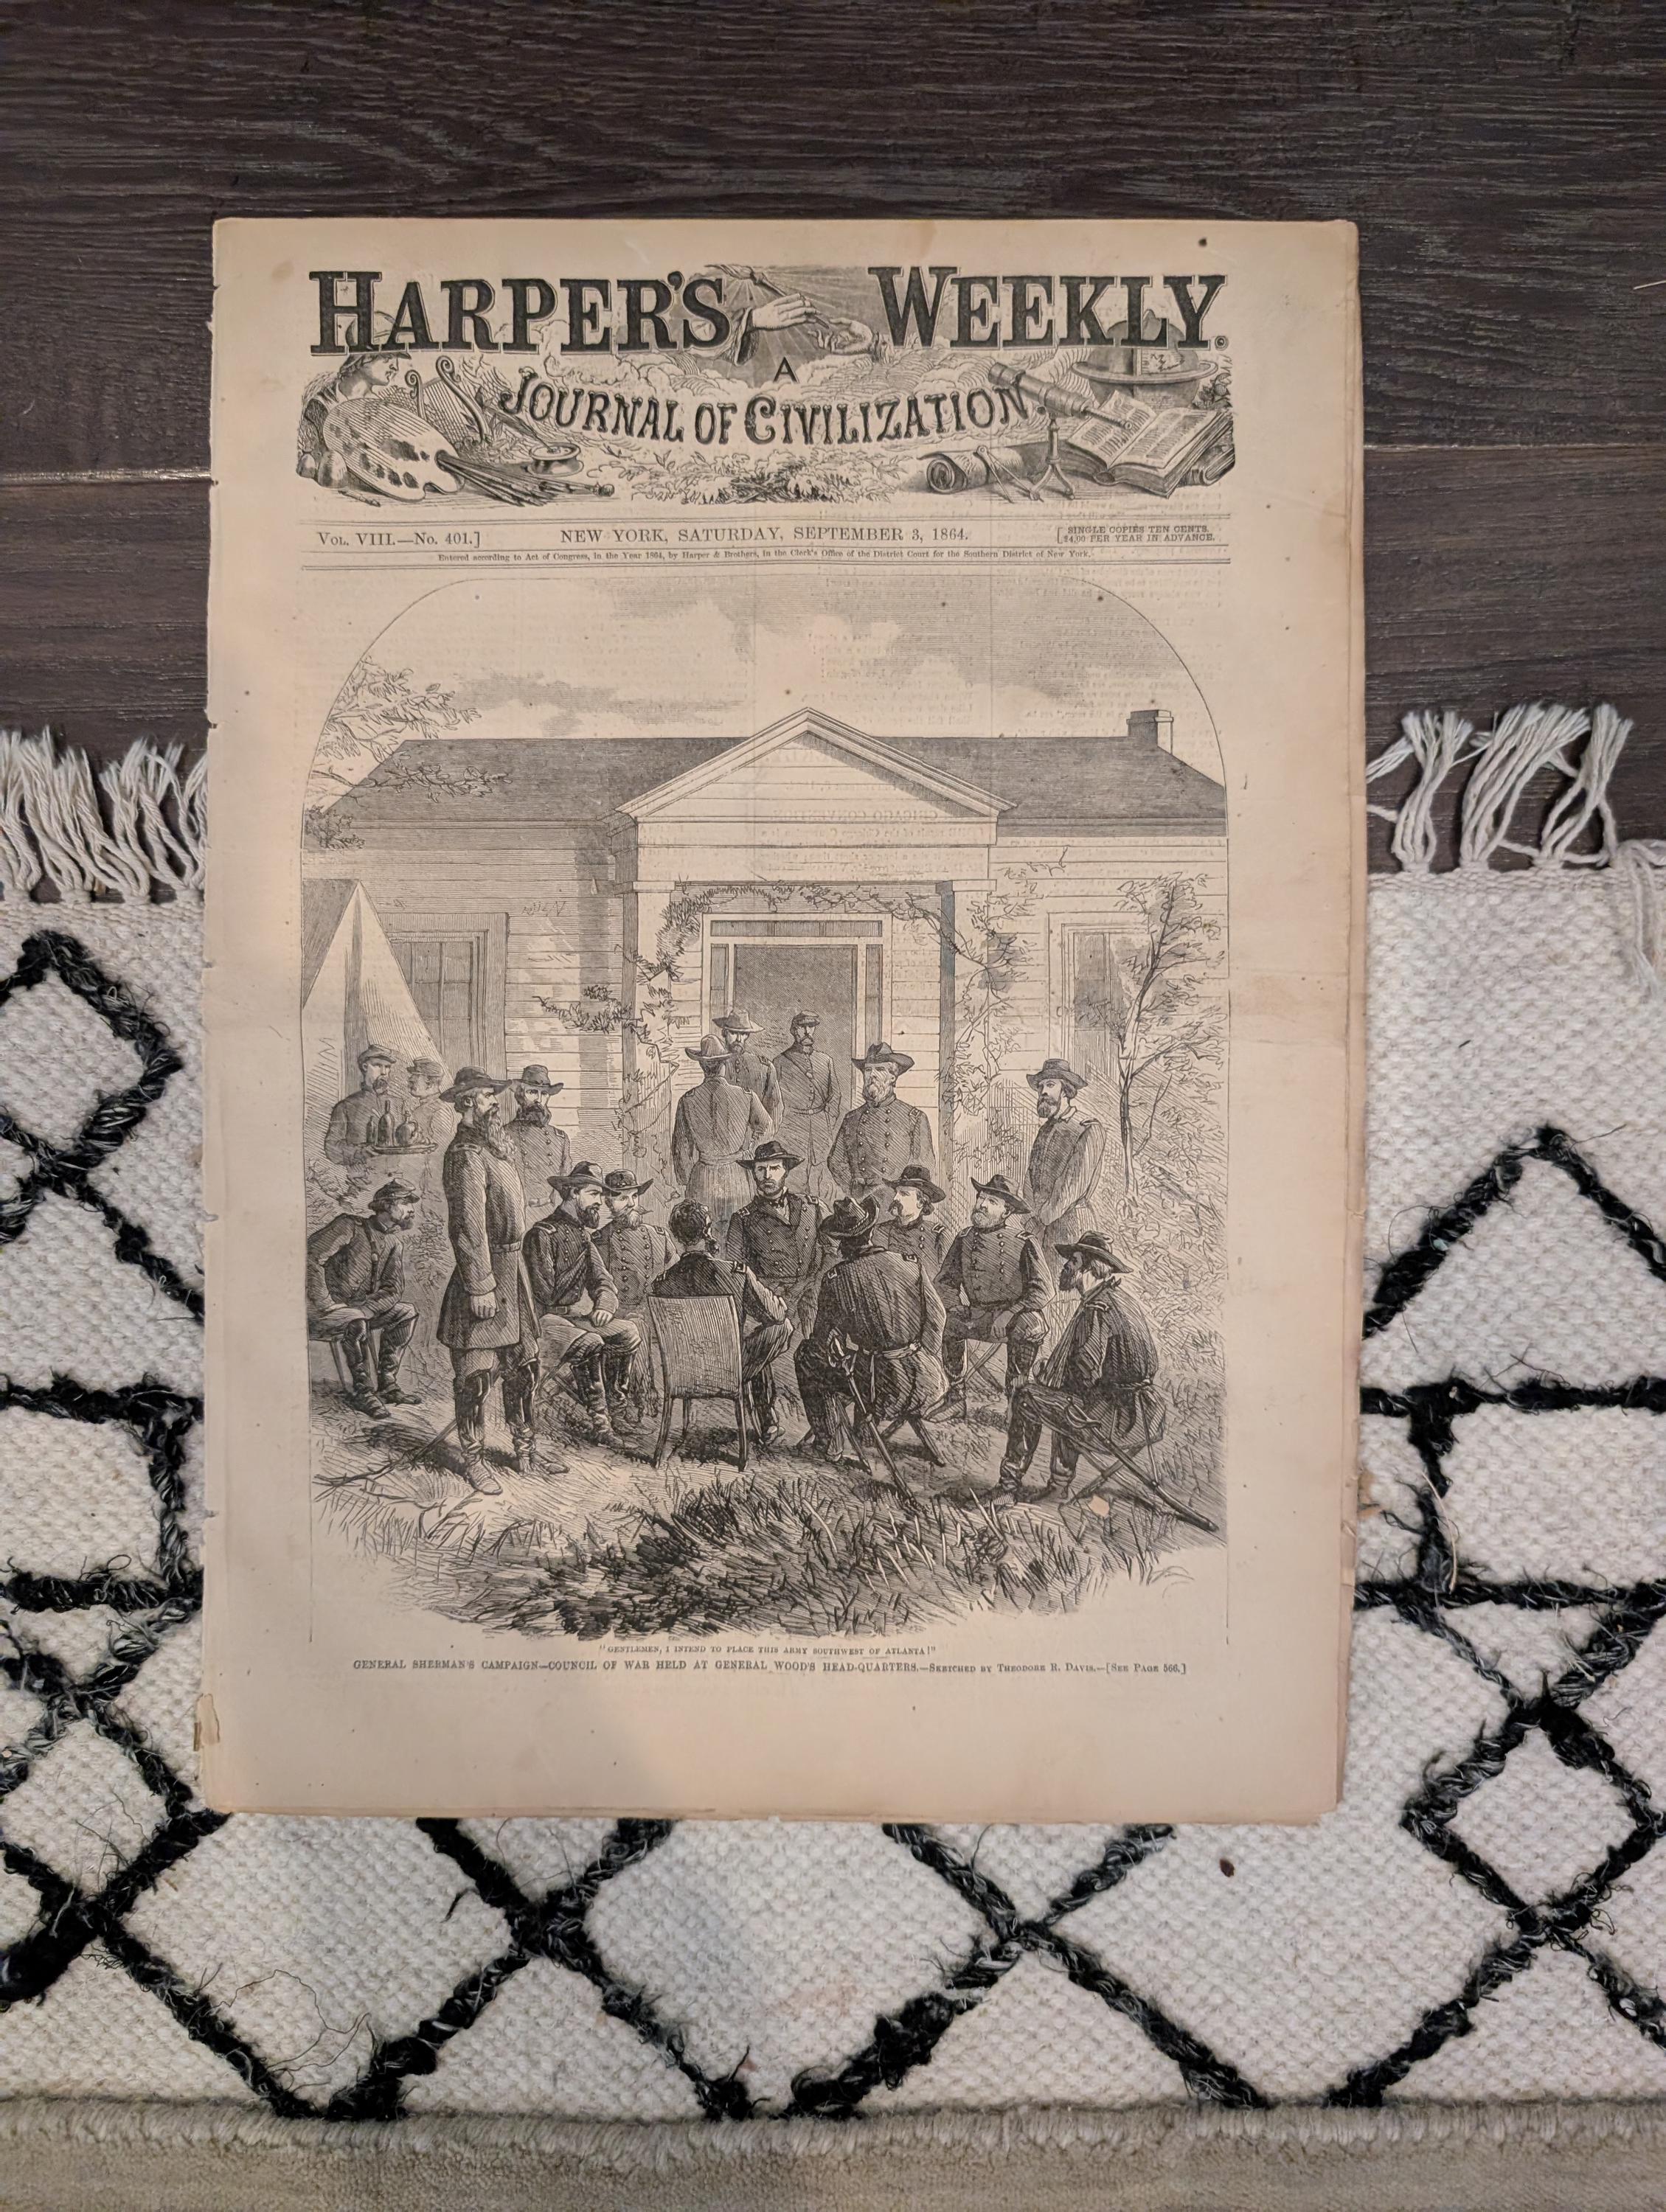 HARPER'S WEEKLY.
A
JOURNAL OF CIVILIZATION.
VOL. VIII.—No. 401.] NEW YORK, SATURDAY, SEPTEMBER 3, 1864. [SINGLE COPIES TEN CENTS.
$4,00 PER YEAR IN ADVANCE.
Entered according to Act of Congress, in the Year 1864, by Harper & Brothers, in the Clerk's Office of the District Court for the Southern District of New York.
"GENTLEMEN, I INTEND TO PLACE THIS ARMY SOUTHWEST OF ATLANTA!"
GENERAL SHERMAN'S CAMPAIGN—COUNCIL OF WAR HELD AT GENERAL WOOD'S HEAD-QUARTERS.—SKETCHED BY THEODORE R. DAVIS.—[SEE PAGE 566.]